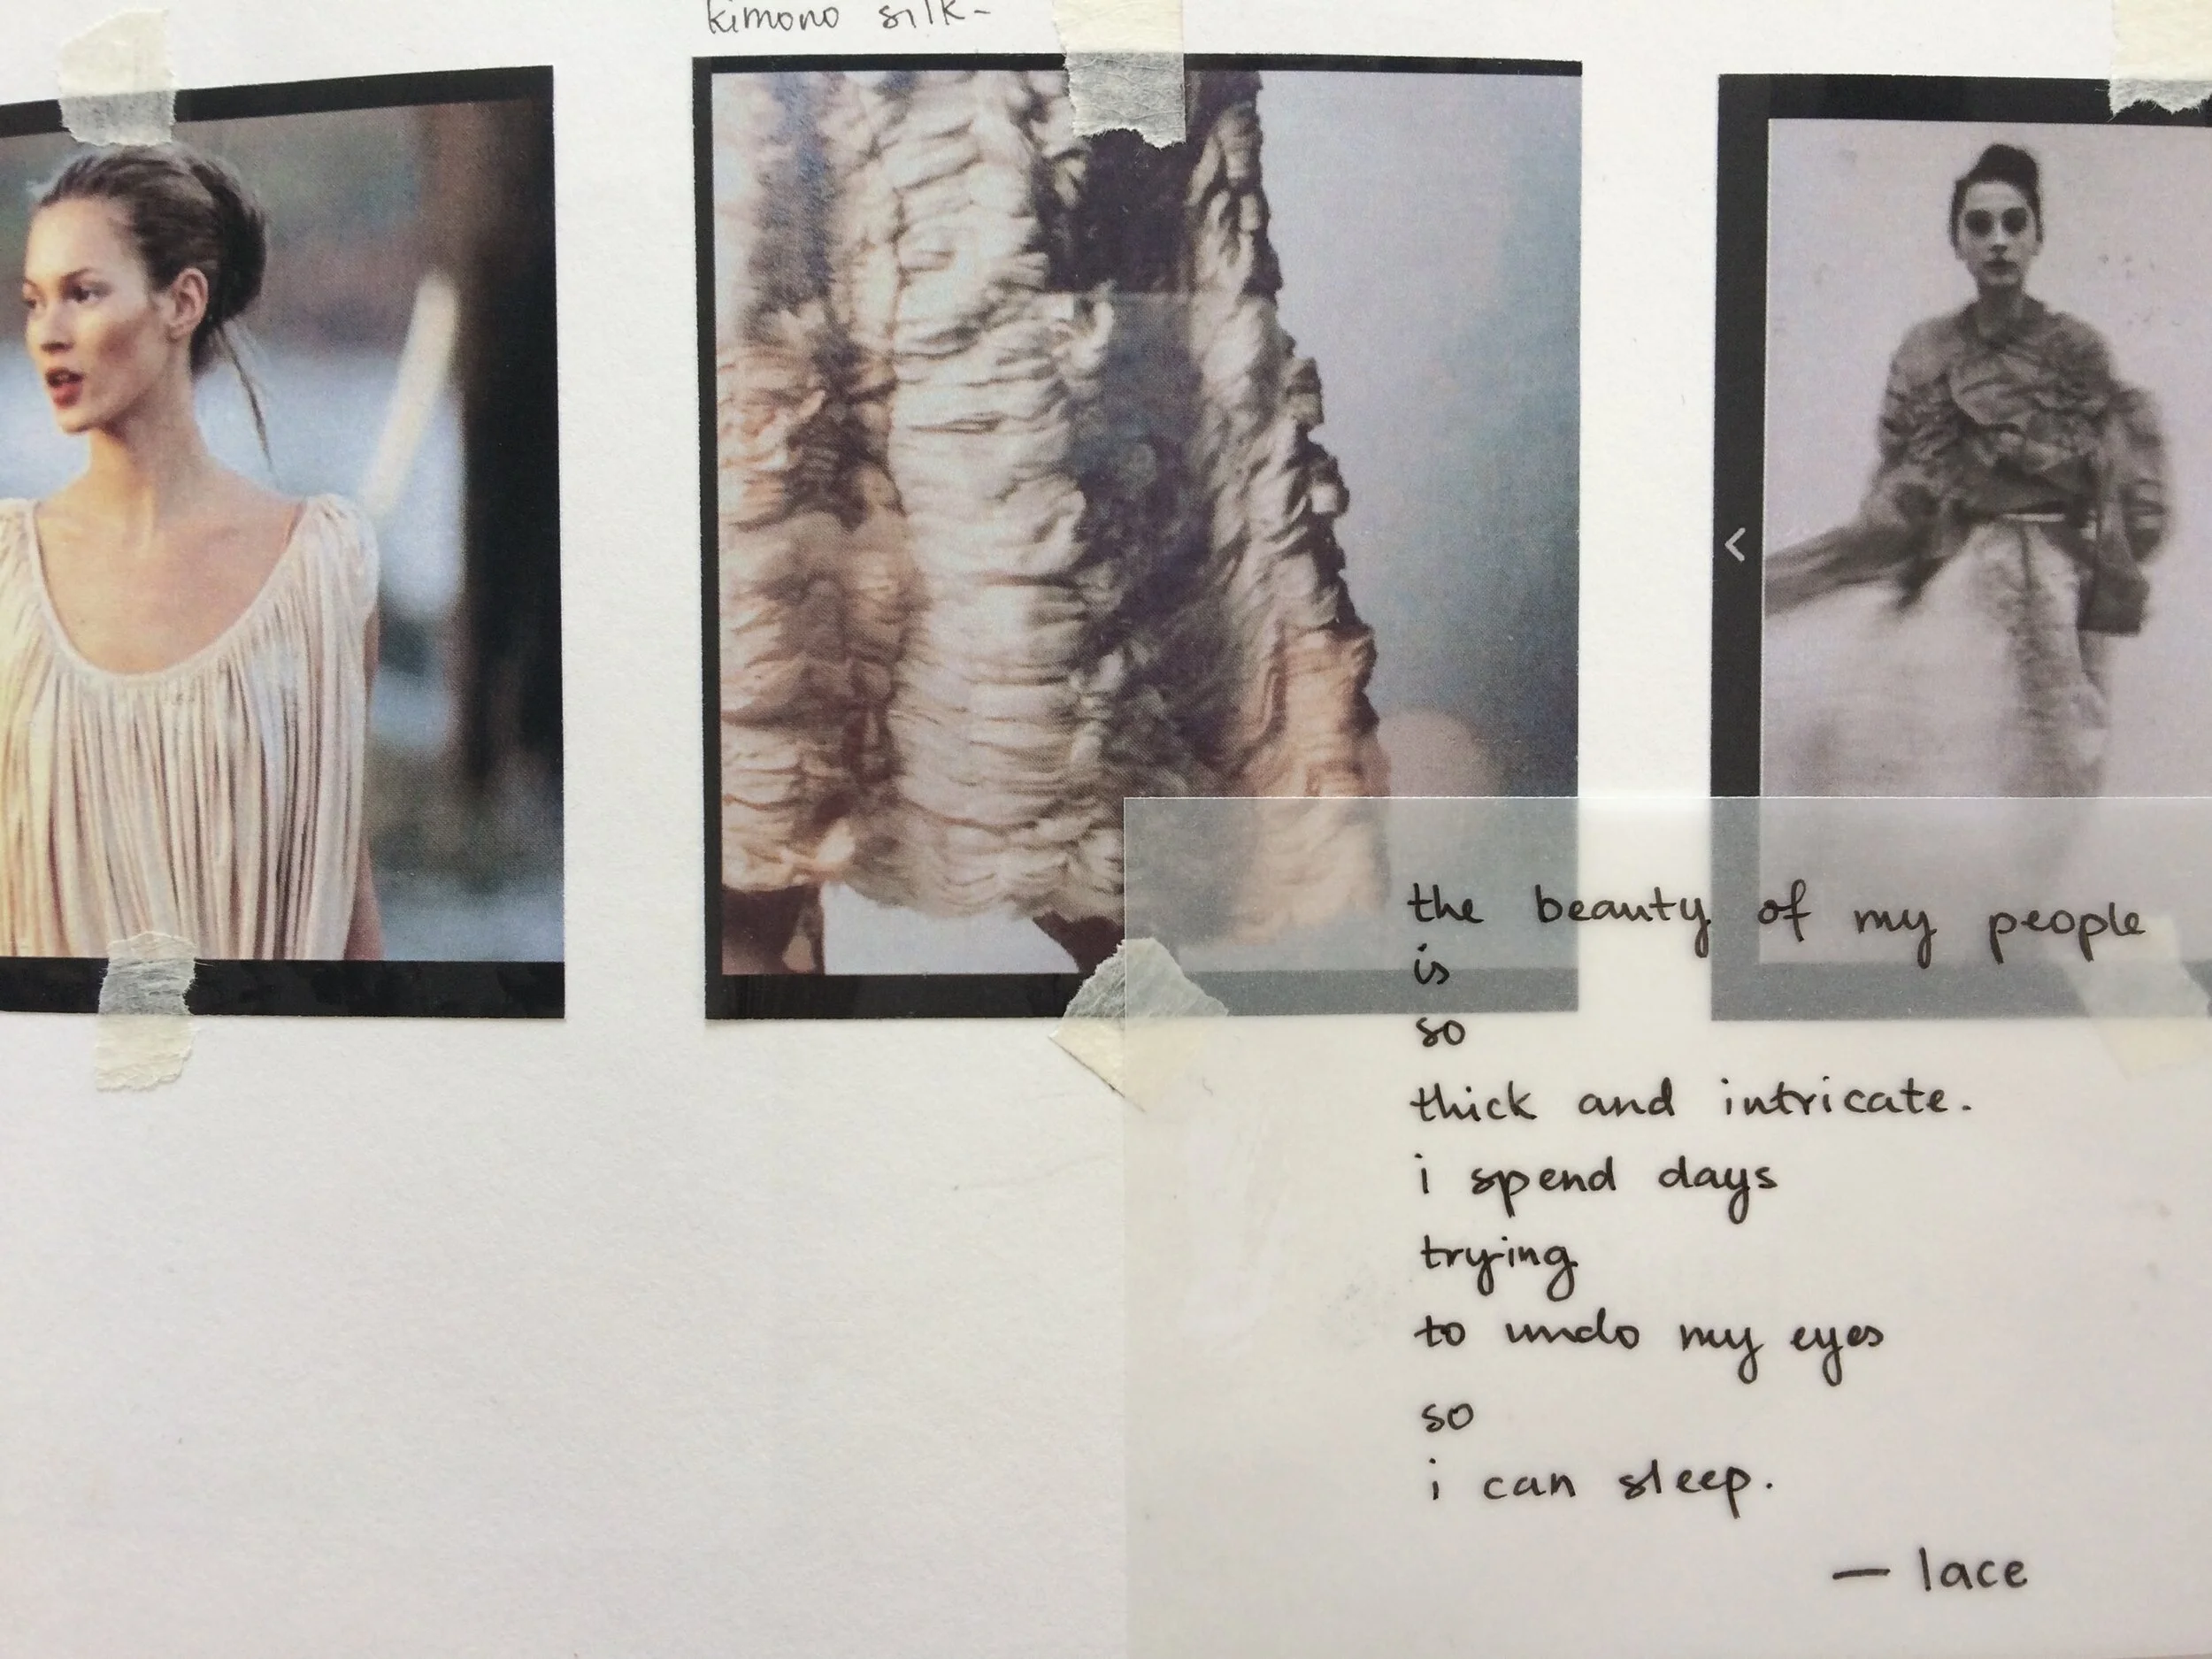 kimono silk-
the beauty of my people
is
so
thick and intricate.
i spend days
trying
to undo my eyes
so
i can sleep.
— lace